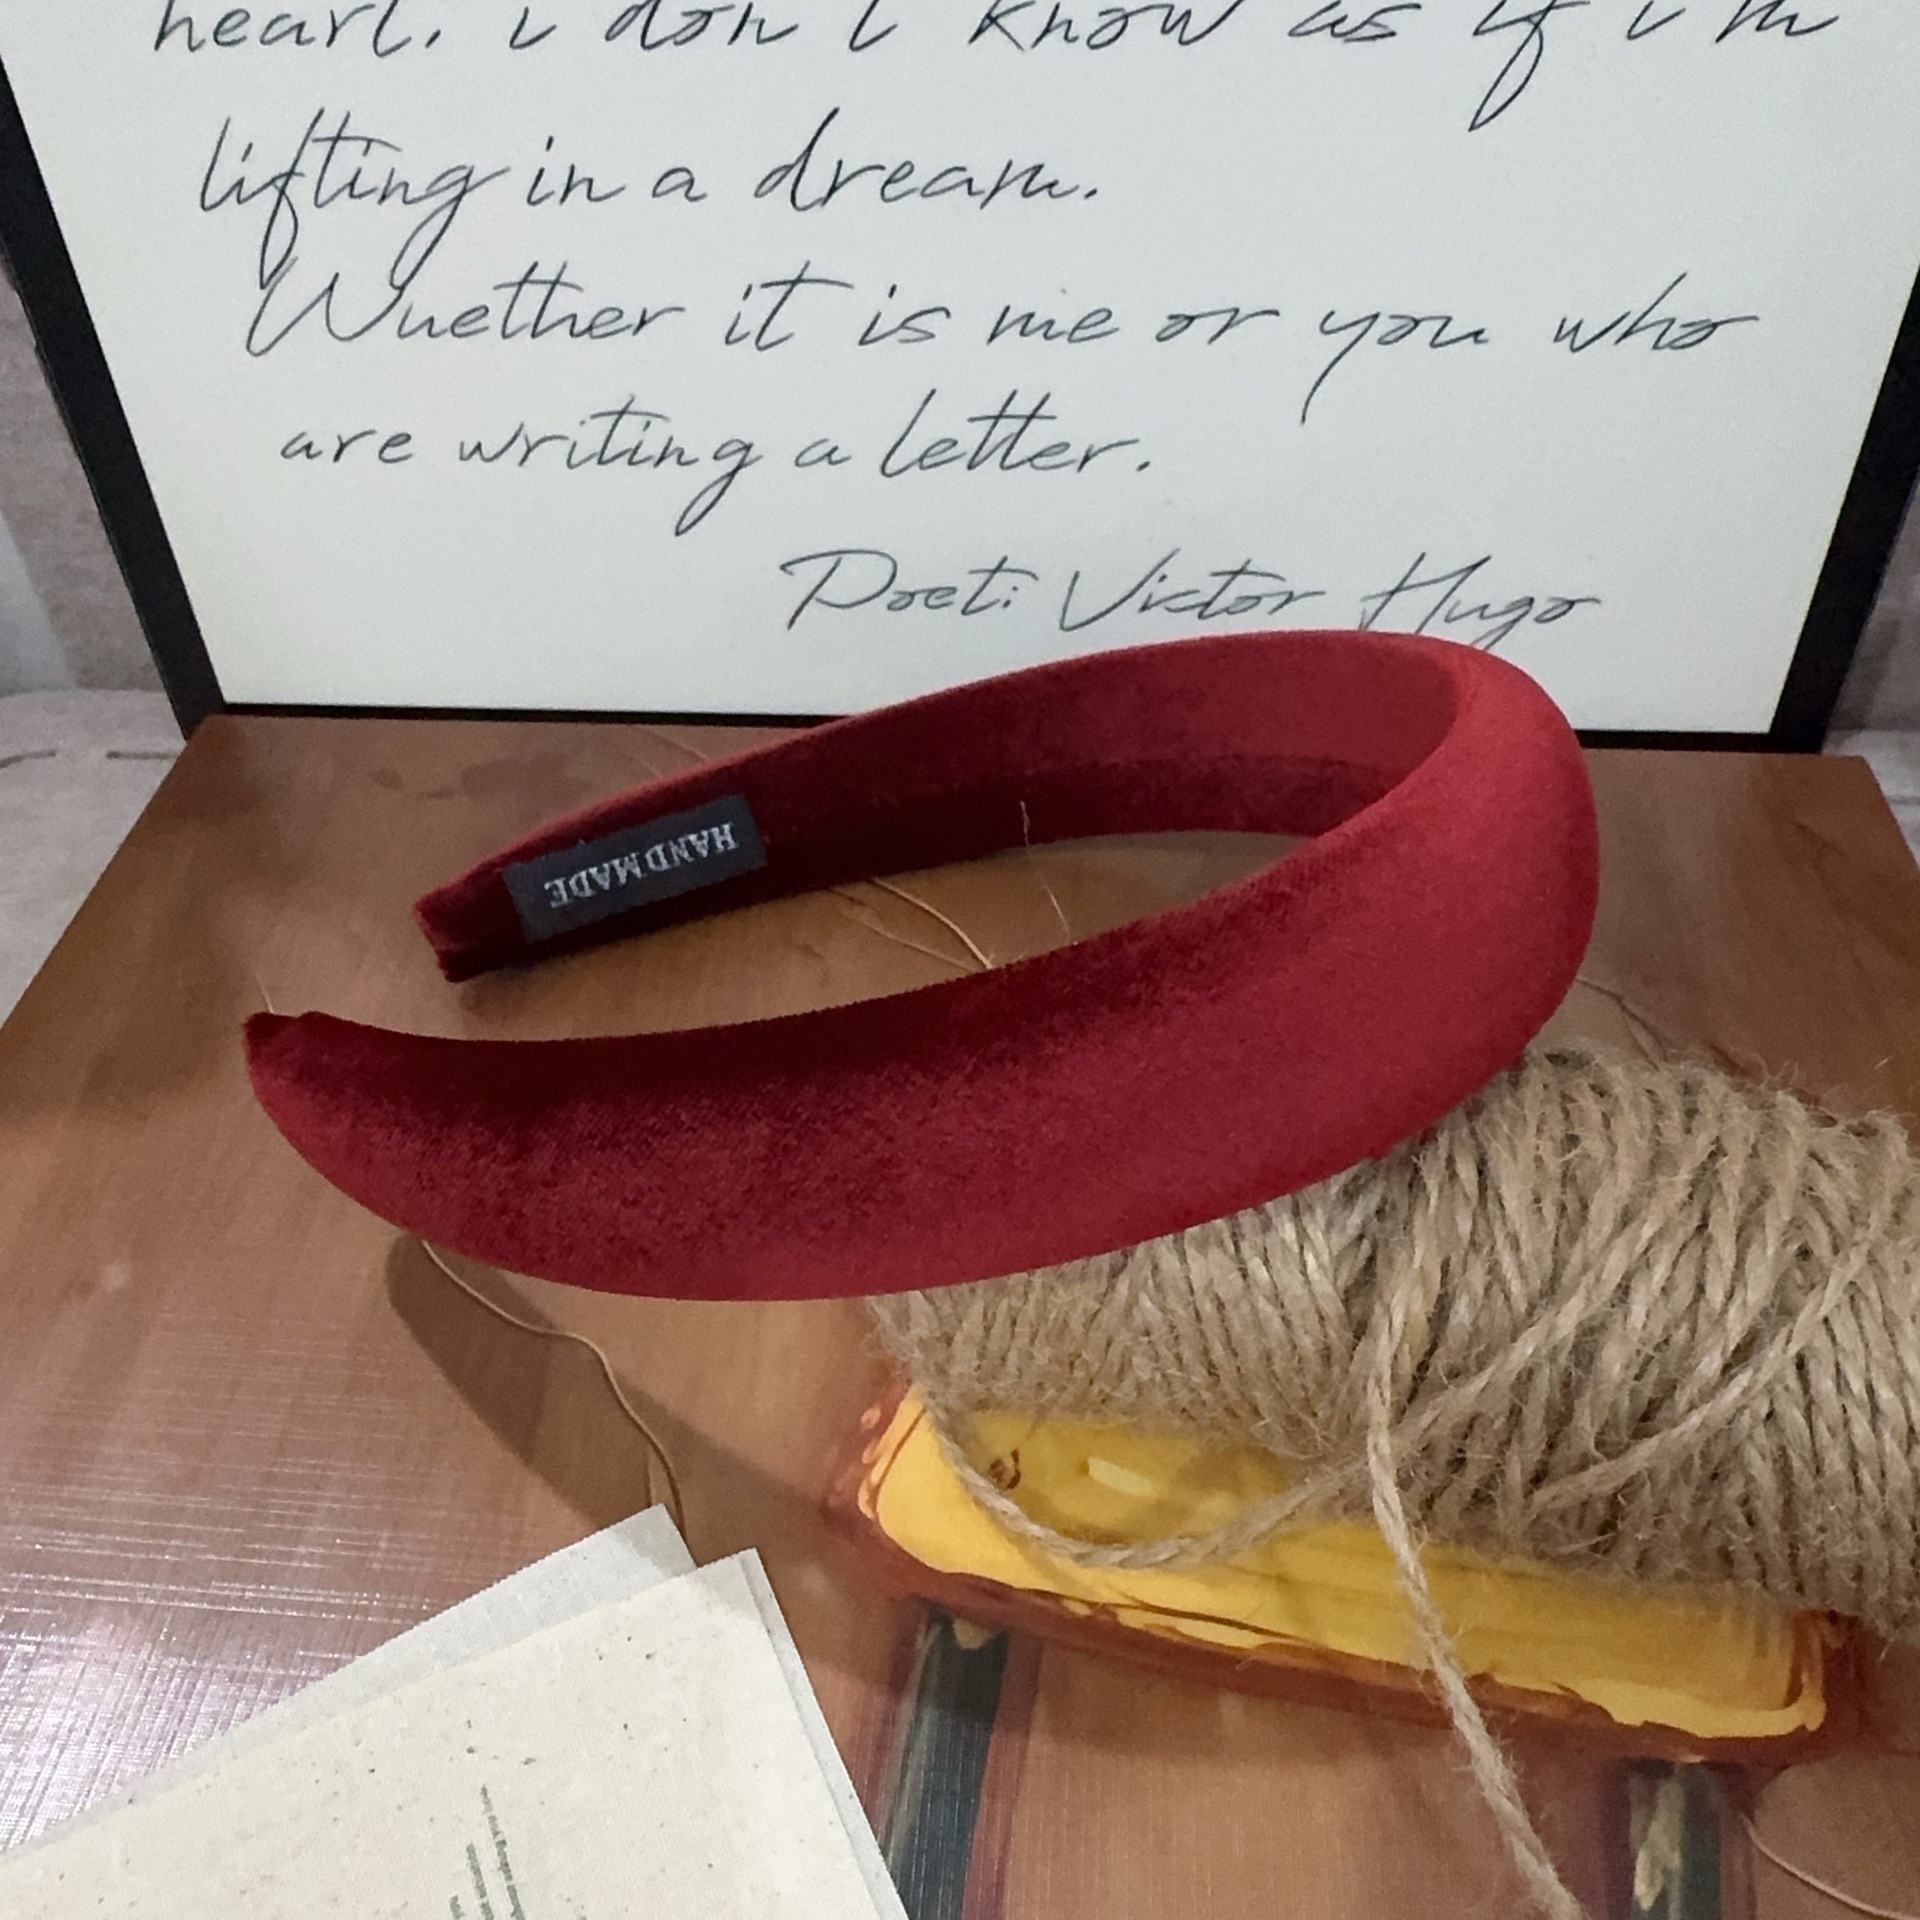 heart. i don't know as if i'm
lifting in a dream.
Wuether it is me or you who
are writing a letter.
Poet: Victor Hugo
HANDMADE